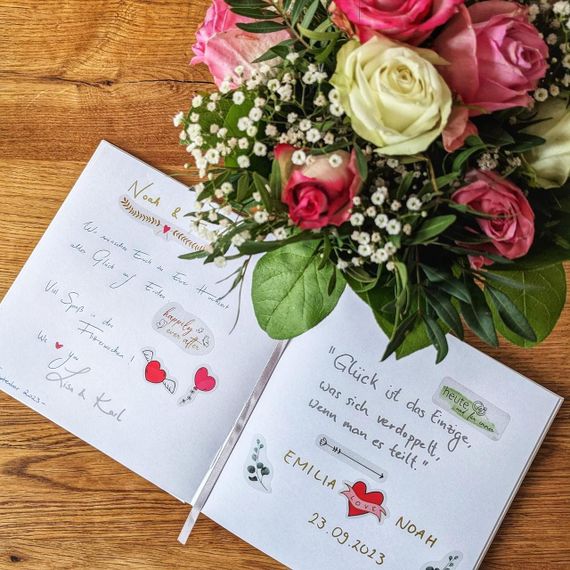 Noah &
Wir wünschen Euch zu Eurer Hochzeit
alles Glück auf Erden
Viel Spaß in den
Flitterwochen!
happily
ever after
We you
Lisa & Karl
2023
"Glück ist das Einzige,
was sich verdoppelt,
wenn man es teilt."
heute
und für immer
EMILIA
LOVE
NOAH
23.09.2023